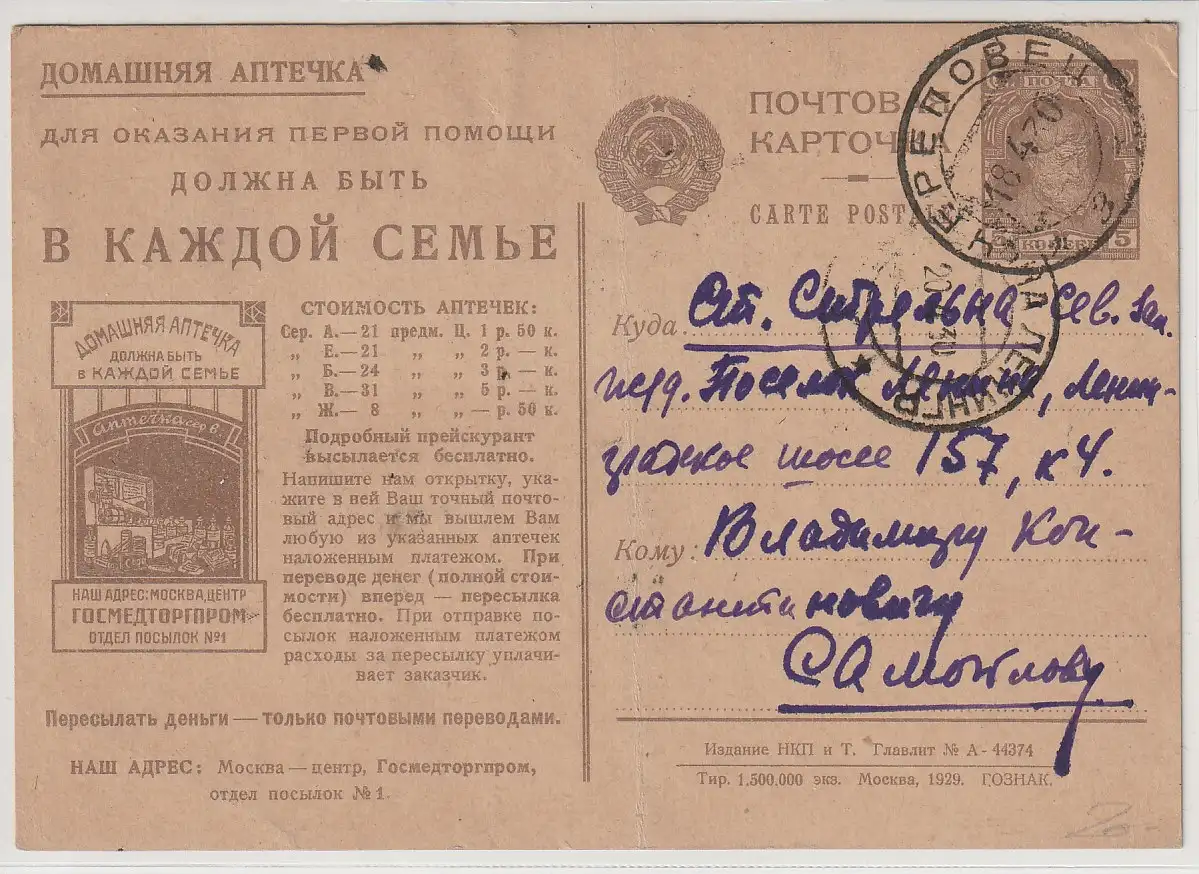 ДОМАШНЯЯ АПТЕЧКА
ДЛЯ ОКАЗАНИЯ ПЕРВОЙ ПОМОЩИ
ДОЛЖНА БЫТЬ
В КАЖДОЙ СЕМЬЕ
ДОМАШНЯЯ АПТЕЧКА
ДОЛЖНА БЫТЬ
в КАЖДОЙ СЕМЬЕ
аптечка сер в.
НАШ АДРЕС: МОСКВА, ЦЕНТР
ГОСМЕДТОРГПРОМ
ОТДЕЛ ПОСЫЛОК №1
СТОИМОСТЬ АПТЕЧЕК:
Сер. А.— 21 предм. Ц. 1 р. 50 к.
„ Е.— 21 „ „ 2 р. — к.
„ Б.— 24 „ „ 3 р. — к.
„ В.— 31 „ „ 5 р. — к.
„ Ж.— 8 „ „ — р. 50 к.
Подробный прейскурант
высылается бесплатно.
Напишите нам открытку, ука-
жите в ней Ваш точный почто-
вый адрес и мы вышлем Вам
любую из указанных аптечек
наложенным платежом. При
переводе денег (полной стои-
мости) вперед — пересылка
бесплатно. При отправке по-
сылок наложенным платежом
расходы за пересылку уплачи-
вает заказчик.
Пересылать деньги — только почтовыми переводами.
НАШ АДРЕС: Москва — центр, Госмедторгпром,
отдел посылок №1.
ПОЧТОВ
КАРТОЧКА
CARTE POSTAL
ПОЧТА
5 КОПЕЕК 5
ЧЕРЕПОВЕЦ
18 4 30
20 4 30
ЛЕНИНГР
Куда: ст. Стрельна Сев. Зап.
жед. Поселок Ленина, Ленин-
градское шоссе 157, к 4.
Кому: Владимиру Кон-
стантиновичу
Самойлову
Издание НКП и Т. Главлит № А-44374
Тир. 1.500.000 экз. Москва, 1929. ГОЗНАК.
20-